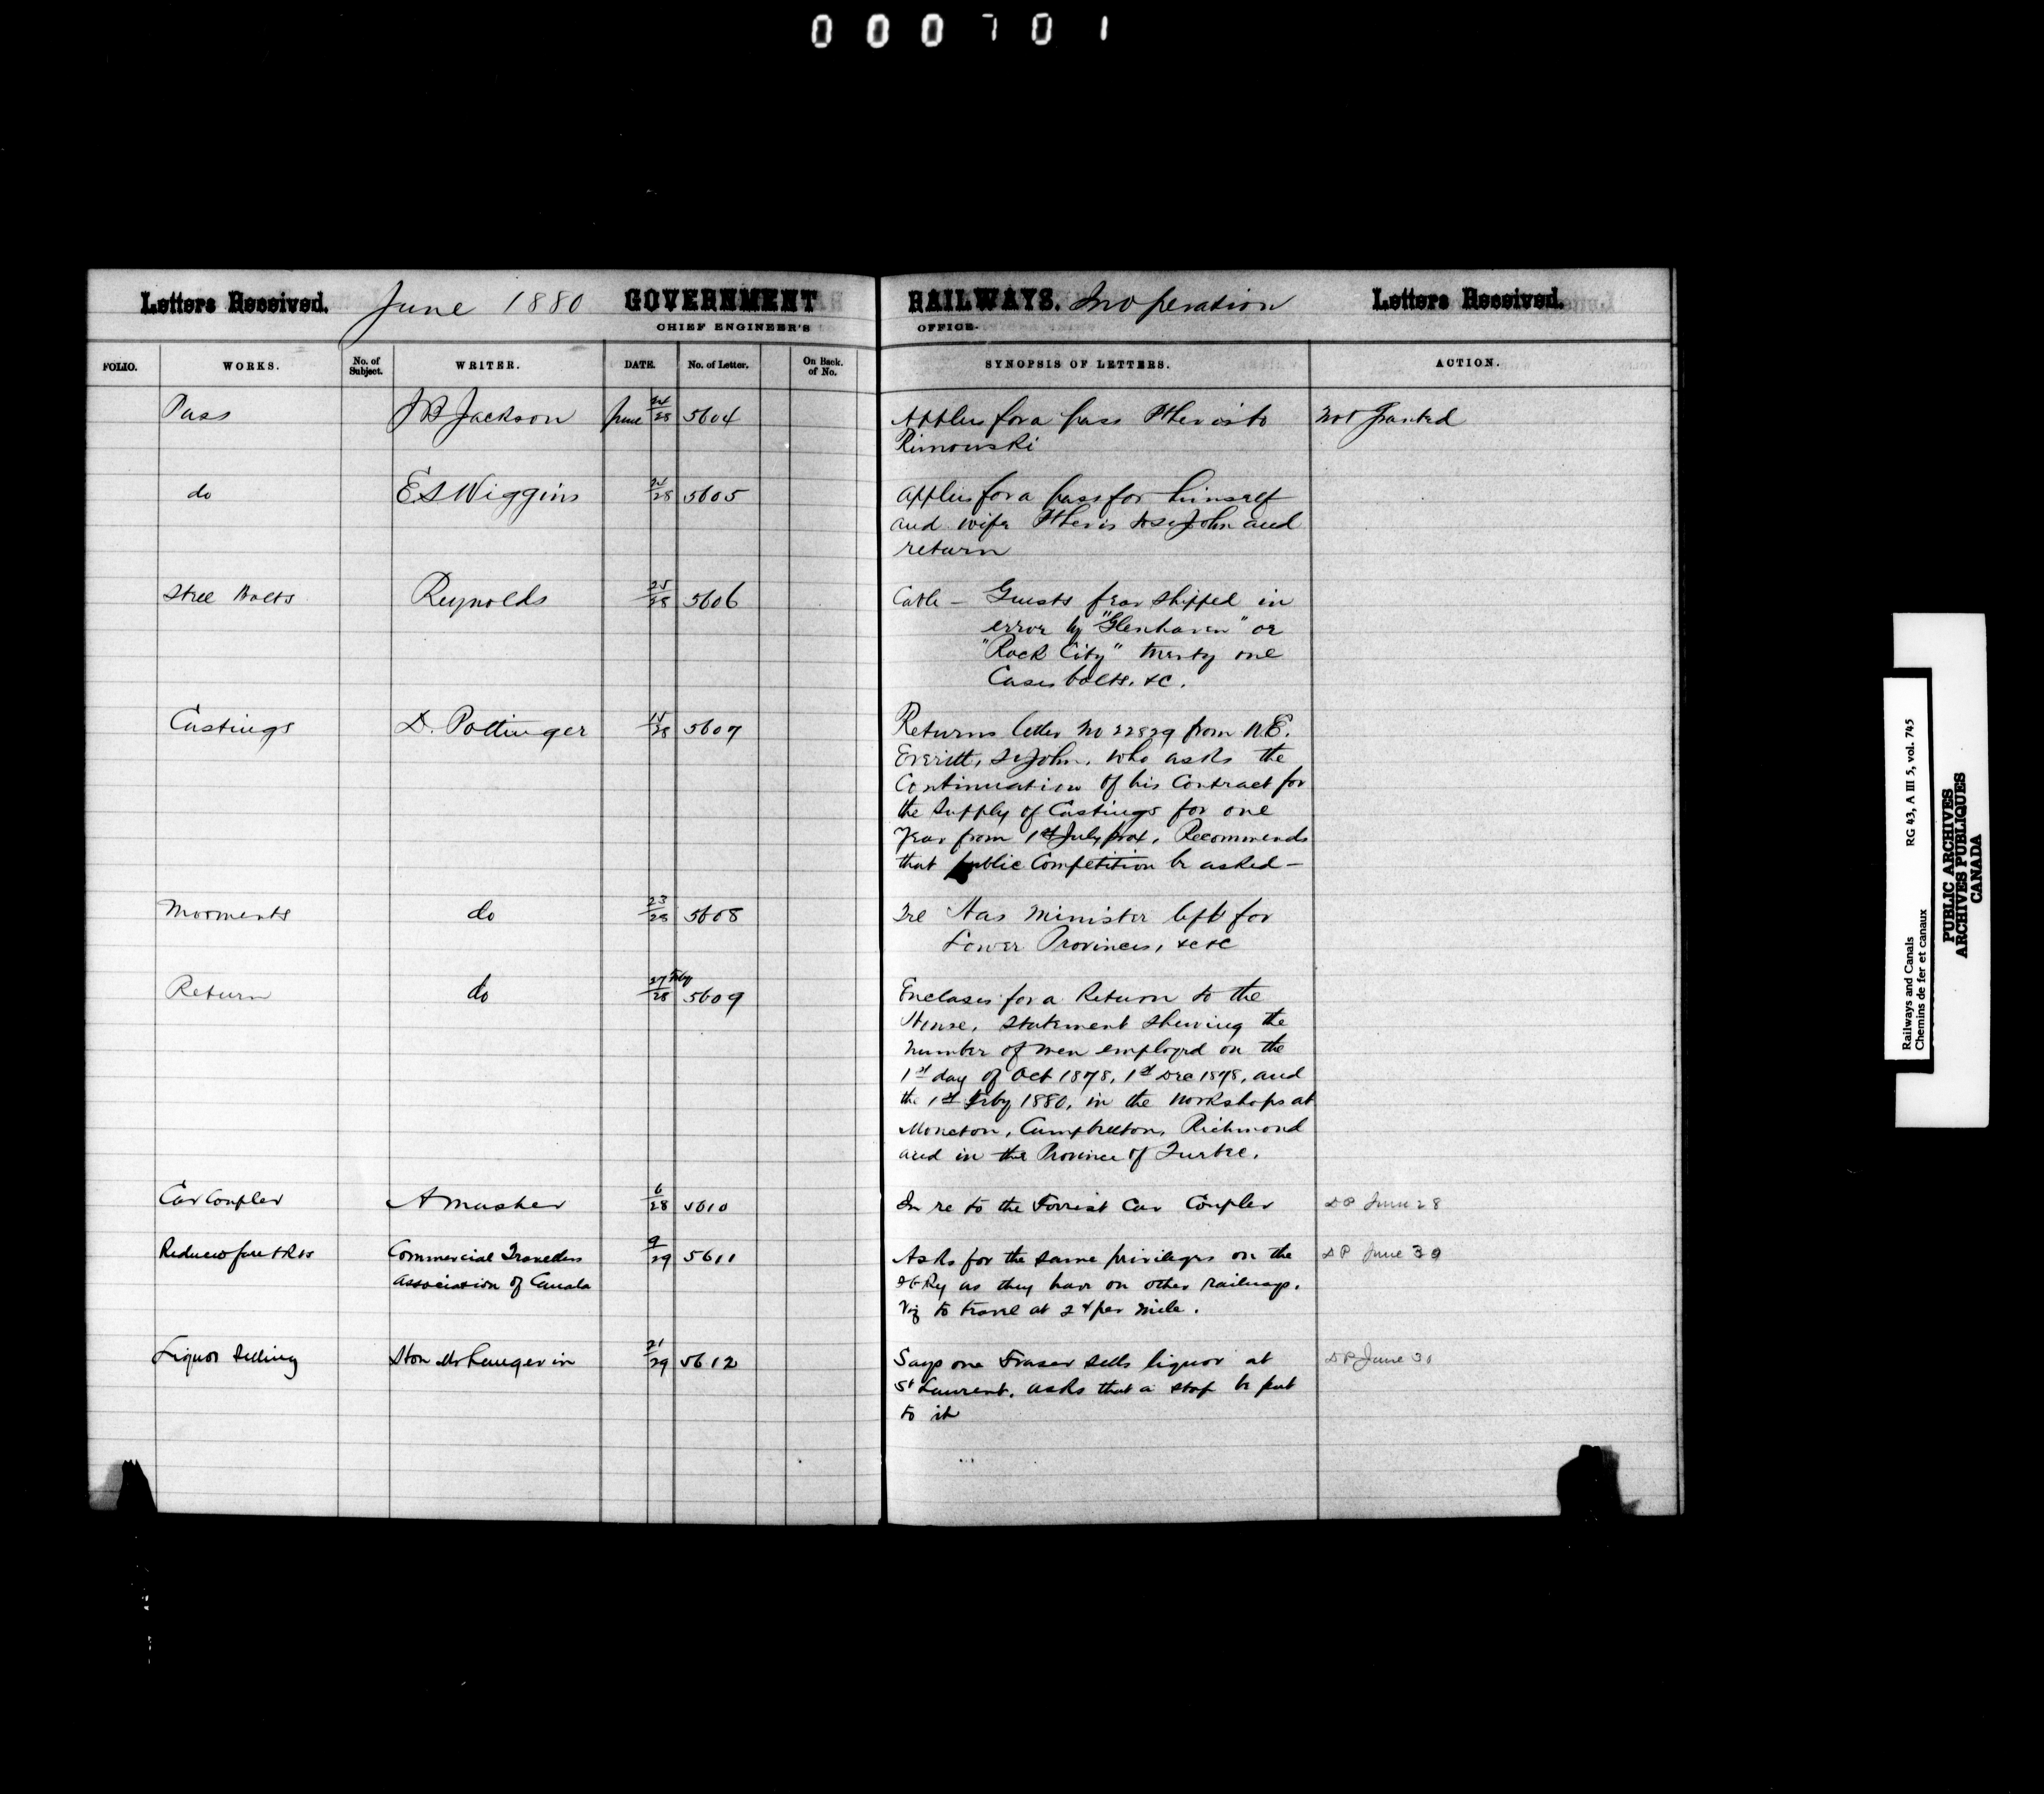 000701
Letters Received. June 1880 GOVERNMENT RAILWAYS. In operation Letters Received.
CHIEF ENGINEER'S OFFICE.
FOLIO. WORKS. No. of Subject. WRITER. DATE. No. of Letter. On Back of No. SYNOPSIS OF LETTERS. ACTION.
Pass J B Jackson June 24/28 5604 Applies for a pass Levis to Not Granted
Rimouski
do E S Wiggins 24/28 5605 Applies for a pass for himself
and wife Levis to St John and
return
Steel Bolts Reynolds 25/28 5606 Cable — Guests fear shipped in
error by "Glenhaven" or
"Rock City" twenty one
Cases bolts. &c.
Castings D. Pottinger 15/28 5607 Returns letter No 22829 from
Everitt, St John, who asks the
Continuation of his Contract for
the Supply of Castings for one
Year from 1st July prox. Recommends
that public Competition be asked —
Movements do 23/28 5608 Tel Has Minister left for
Lower Provinces, &c &c
Return do 27 Feby/28 5609 Encloses for a Return to the
House, Statement shewing the
number of men employed on the
1st day of Oct 1878, 1st Dec 1878, and
the 1st Feby 1880, in the Workshops at
Moncton, Campbellton, Richmond
and in the Province of Quebec.
Car Coupler A Musher 6/28 5610 In re to the Forrest Car Coupler DP June 28
Reduced fare Commercial Travellers 9/29 5611 Asks for the same privileges on the DP June 30
Association of Canada I C Ry as they have on other railways.
Viz to travel at 2 ¢ per mile.
Liquor Selling Hon Mr Langevin 21/29 5612 Says one Fraser sells liquor at DP June 30
St Laurent. Asks that a stop be put
to it
Railways and Canals RG 43, A III 5, vol. 745
Chemins de fer et canaux
PUBLIC ARCHIVES
ARCHIVES PUBLIQUES
CANADA